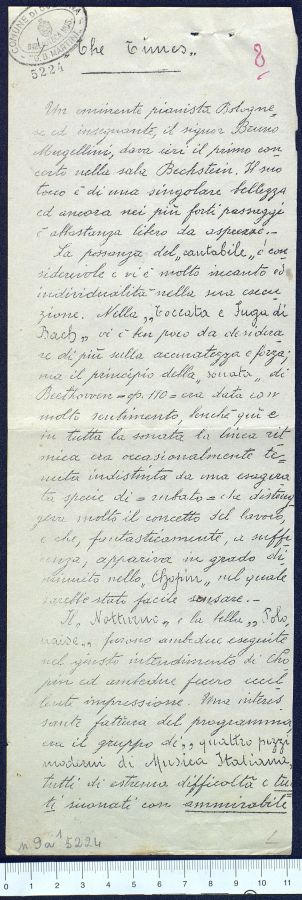 COMUNE DI BOLOGNA
"G.B. MARTINI"
5224
"The Times"
8
Un eminente pianista Bologne-
se ed insegnante, il signor Bruno
Mugellini, dava ieri il primo con-
certo nella sala Bechstein. Il suo
tocco è di una singolare bellezza
ed ancora nei più forti passaggi
è abbastanza libero da asprezze. -
La possanza del "cantabile" è con
siderevole e vi è molto incanto ed
individualità nella sua esecu-
zione. Nella "Toccata e Fuga di
Bach" vi è ben poco da desidera
re di più sulla accuratezza e forza;
ma il principio della "sonata" di
Beethoven = op. 110 = era data con
molto sentimento, benchè qui e
in tutta la sonata la linea rit
mica era occasionalmente te-
nuta indistinta da una esagera
ta specie di = rubato = che distrug
geva molto il concetto del lavoro,
e che, fantasticamente, a suffi
cenza, appariva in grado di
minuito nello "Chopin" nel quale
sarebbe stato facile scusare. -
Il "Notturno" e la bella "Polo
naise" furono ambedue eseguite
nel giusto intendimento di Cho
pin ed ambedue fecero eccel
lente impressione. Una interes
sante fattura del programma
era il gruppo di "quattro pezzi
moderni di Musica Italiana,
tutti di estrema difficoltà e tut
ti suonati con ammirabile
n. 9a¹ 5224
0 1 2 3 4 5 6 7 8 9 10 11